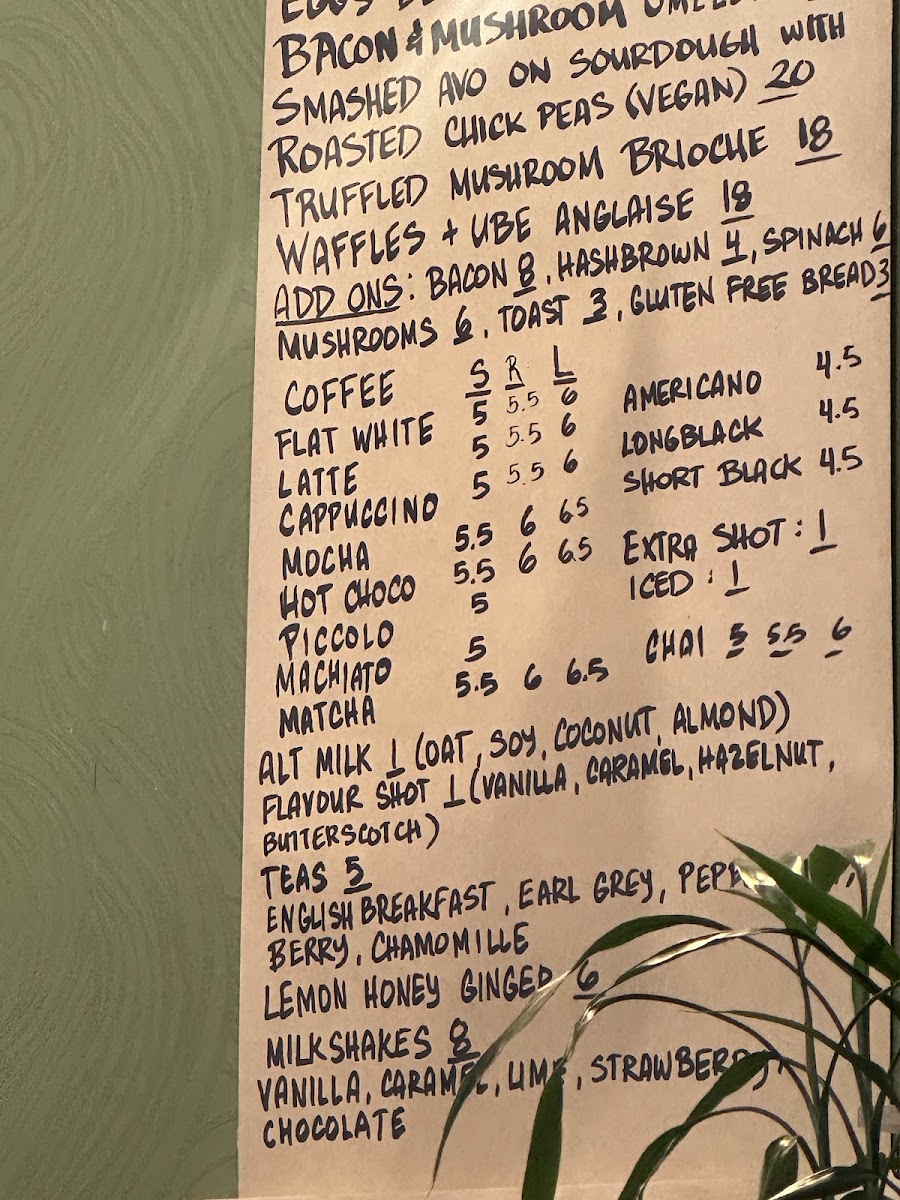 EGGS
BACON & MUSHROOM
SMASHED AVO ON SOURDOUGH WITH
ROASTED CHICK PEAS (VEGAN) 20
TRUFFLED MUSHROOM BRIOCHE 18
WAFFLES + UBE ANGLAISE 18
ADD ONS: BACON 8, HASHBROWN 4, SPINACH 6
MUSHROOMS 6, TOAST 3, GLUTEN FREE BREAD 3
COFFEE S R L
FLAT WHITE 5 5.5 6
LATTE 5 5.5 6
CAPPUCCINO 5 5.5 6
MOCHA 5.5 6 6.5
HOT CHOCO 5.5 6 6.5
PICCOLO 5
MACHIATO 5
MATCHA 5.5 6 6.5
AMERICANO 4.5
LONGBLACK 4.5
SHORT BLACK 4.5
EXTRA SHOT: 1
ICED: 1
CHAI 5 5.5 6
ALT MILK 1 (OAT, SOY, COCONUT, ALMOND)
FLAVOUR SHOT 1 (VANILLA, CARAMEL, HAZELNUT,
BUTTERSCOTCH)
TEAS 5
ENGLISH BREAKFAST, EARL GREY,
BERRY, CHAMOMILLE
LEMON HONEY GINGER 6
MILKSHAKES 8
VANILLA, CARAMEL, LIME, STRAWBERRY
CHOCOLATE